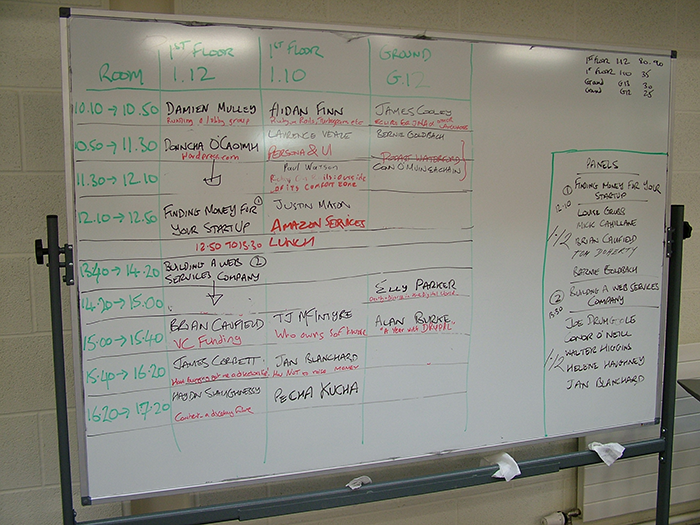 ROOM
1ST FLOOR
1.12
1ST FLOOR
1.10
GROUND
G.12
10.10 → 10.50
DAMIEN MULLEY
Running a lobby group
AIDAN FINN
JAMES COOLEY
10.50 → 11.30
DONNCHA O'CAOIMH
Wordpress.com
LAURENCE VEALE
PERSONA & UI
BERNIE GOLDBACH
PODCAST WATERFORD
11.30 → 12.10
Paul Watson
outside
of its COMFORT ZONE
CON O'MUINEACHAIN
12.10 → 12.50
FINDING MONEY FOR ①
YOUR STARTUP
JUSTIN MASON
AMAZON SERVICES
12.50 TO 13.30
LUNCH
13.40 → 14.20
BUILDING A WEB ②
SERVICES COMPANY
14.20 → 15.00
ELLY PARKER
15.00 → 15.40
BRIAN CAULFIELD
VC Funding
TJ McINTYRE
Who owns software
ALAN BURKE
"A Year with DRUPAL"
15.40 → 16.20
JAMES CORBETT
JAN BLANCHARD
How NOT to raise MONEY
16.20 → 17.20
HAYDN SHAUGHNESSY
PECHA KUCHA
1ST FLOOR 112 80-90
1ST FLOOR 110 35
Ground G13 30
Ground G12 25
PANELS
① FINDING MONEY FOR YOUR
STARTUP
12.10
LOUISE
MICK CAHILLANE
1.12
BRIAN CAULFIELD
TOM DOHERTY
BERNIE GOLDBACH
② BUILDING A WEB SERVICES
COMPANY
JOE DRUMGOOLE
CONOR O'NEILL
1.12
WALTER HIGGINS
HELENE HAUGHNEY
JAN BLANCHARD